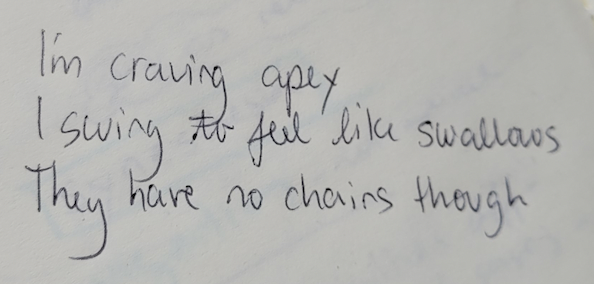 I'm craving apex
I swing to feel like swallows
They have no chains though